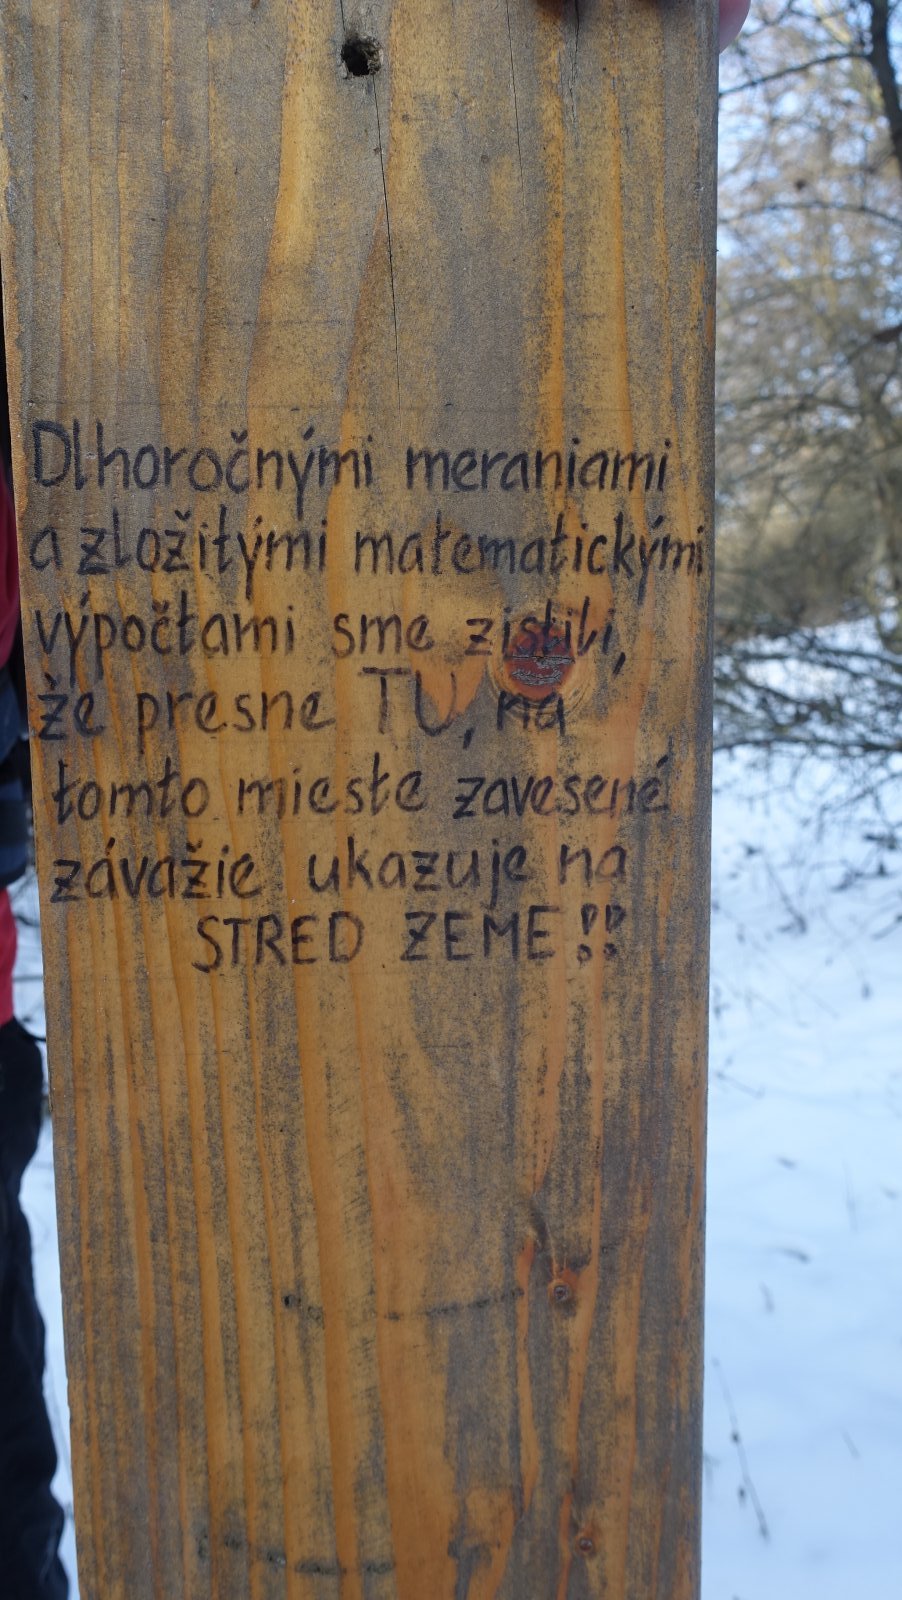 Dlhoročnými meraniami
a zložitými matematickými
výpočtami sme zistili,
že presne TU, na
tomto mieste zavesené
závažie ukazuje na
STRED ZEME!!